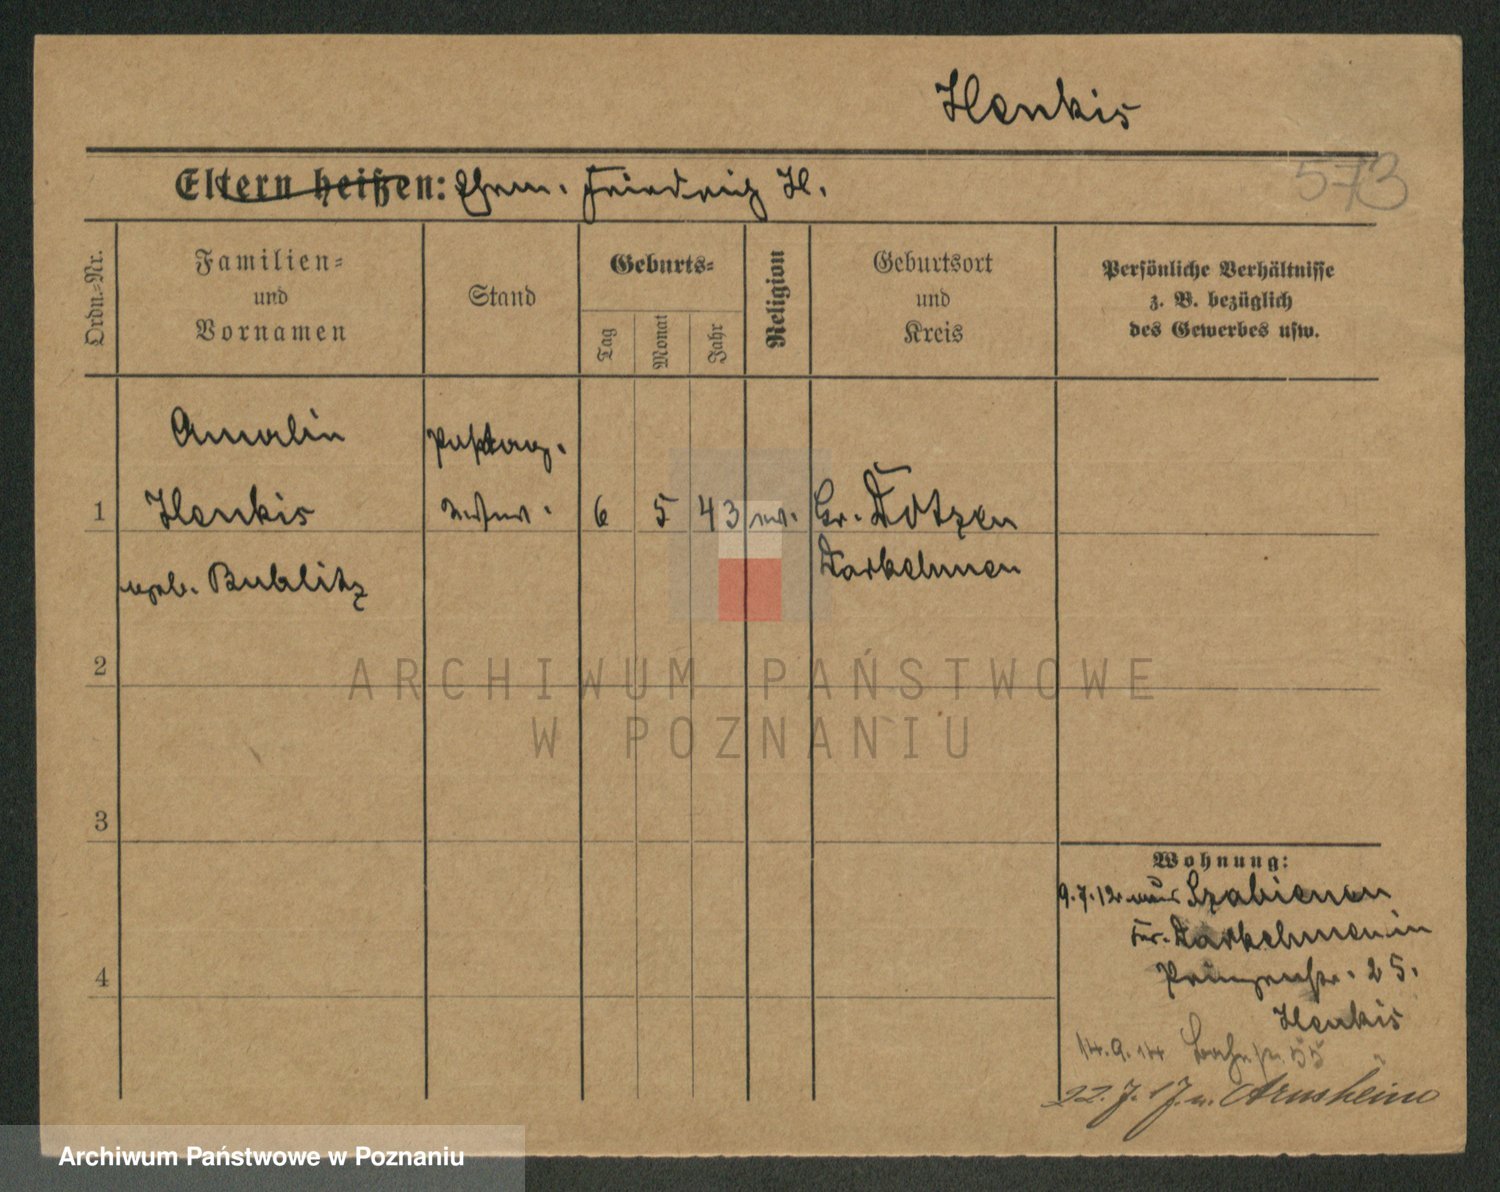 Henkis
573
Eltern heißen: Ehem. Friedrich H.
Ordn.-Nr.
Familien-
und
Vornamen
Stand
Geburts-
Tag
Monat
Jahr
Religion
Geburtsort
und
Kreis
Persönliche Verhältnisse
z. B. bezüglich
des Gewerbes usw.
Amalie
1 Henkis 6 5 43 ev. Gr. Dotzen
geb. Bublitz
Darkehmen
2
ARCHIWUM PAŃSTWOWE
W POZNANIU
3
4
Wohnung:
9.7.12 aus Szabienen
Kr. Darkehmen in
Prinzenstr. 25.
Henkis
14.9.14 55
22.7.17. n. Arnsheim
Archiwum Państwowe w Poznaniu